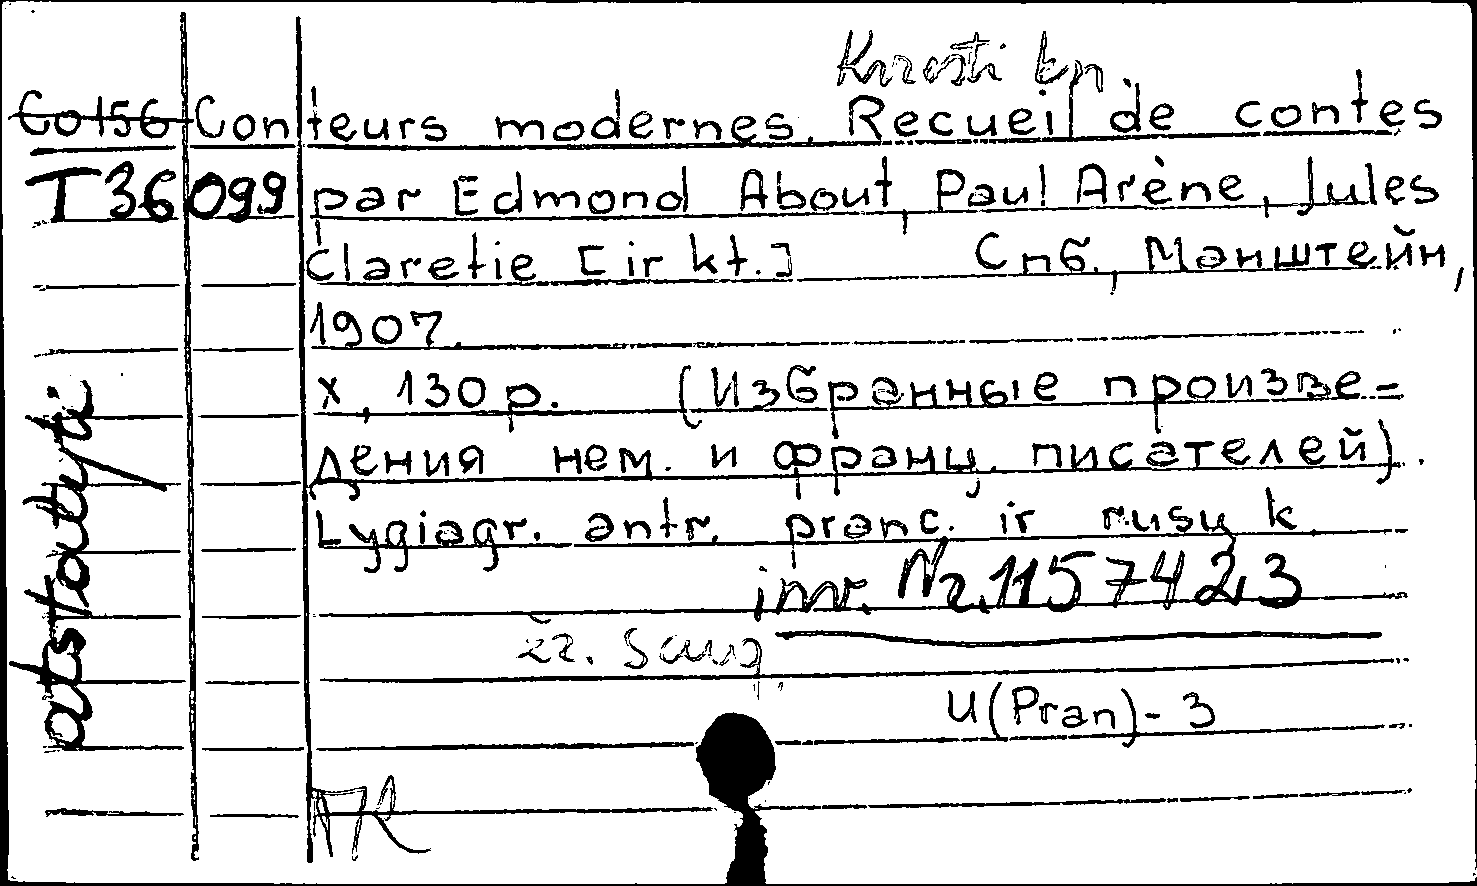 Co156 Conteurs modernes. Recueil de contes
T36099 par Edmond About, Paul Arène, Jules
Claretie [ir kt.] Спб., Манштейн,
1907.
X, 130 p. (Избранные произве-
дения нем. и франц. писателей).
Lygiagr. antr. pranc. ir rusų k.
inv. Nr. 1157423
žr. saug.
U(Pran)-3
atstatyti